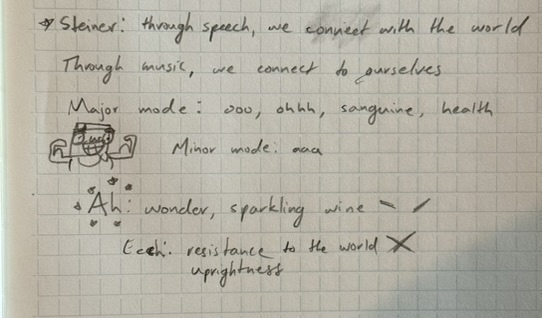 Steiner: through speech, we connect with the world
Through music, we connect to ourselves
Major mode: ooo, ohhh, sanguine, health
Minor mode: aaa
Ah: wonder, sparkling wine
Eeeh: resistance to the world
uprightness